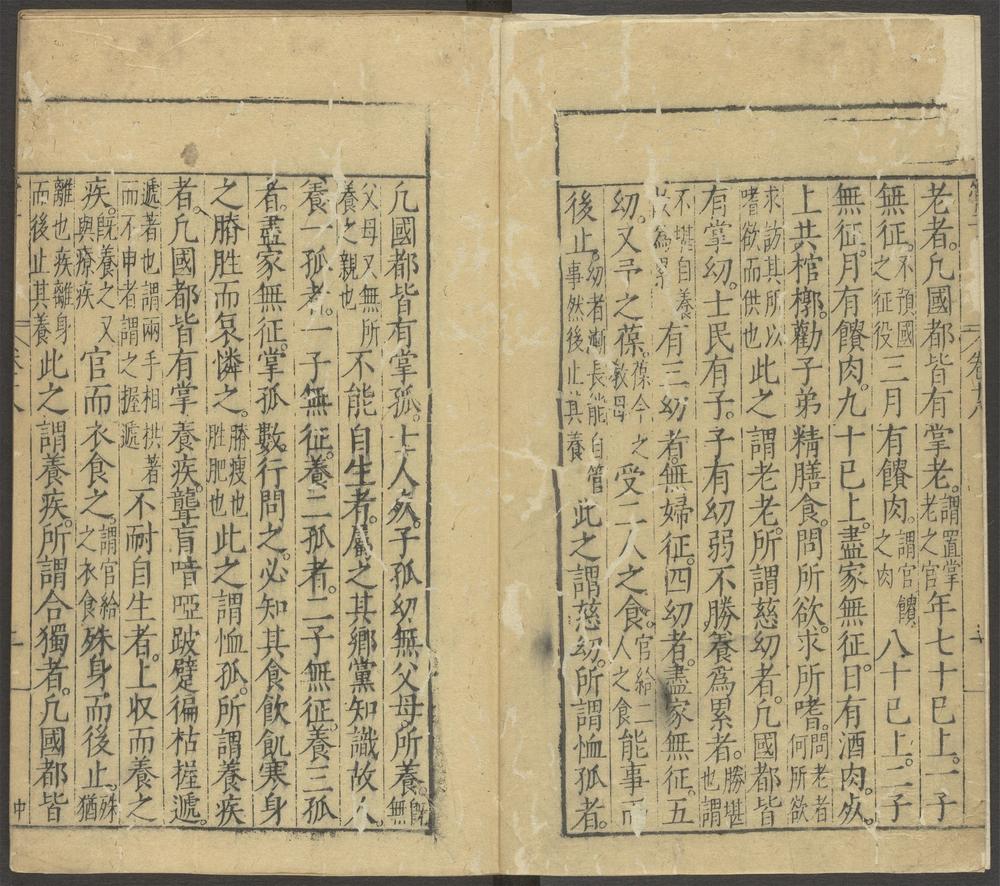 老者。凡國都皆有掌老。謂置掌老之官年七十已上。一子
無征。不預國之征役三月有饋肉。謂官饋之肉八十已上。二子
無征。月有饋肉。九十已上。盡家無征。日有酒肉。死。
上共棺槨。勸子弟精膳食。問所欲。求所嗜。問老者何所欲
求訪其所以嗜欲而供也此之謂老老。所謂慈幼者。凡國都皆
有掌幼。士民有子。子有幼弱不勝養爲累者。勝堪也謂
不堪自養以為累有三幼者。無婦征。四幼者。盡家無征。五
幼。又予之葆。葆今之教母受二人之食。官給二人之食能事而
後止。幼者漸長能自管事然後止其養此之謂慈幼。所謂恤孤者。
凡國都皆有掌孤。士人死。子孤幼。無父母所養。既無
父母又無所養之親也不能自生者。屬之其鄉黨知識故人。
養一孤者。一子無征。養二孤者。二子無征。養三孤
者。盡家無征。掌孤數。行問之。必知其食飲飢寒身
之膌胜而哀憐之。膌瘦也胜肥也此之謂恤孤。所謂養疾
者。凡國都皆有掌養疾。聾盲喑啞跛躄偏枯握遞。
遞著也謂兩手相拱著而不申者謂之握遞不耐自生者。上収而養之
疾。既養之又與療疾官而衣食之。謂官給之衣食殊身而後止。殊猶
離也疾離身而後止其養此之謂養疾。所謂合獨者。凡國都皆
卷十八
中